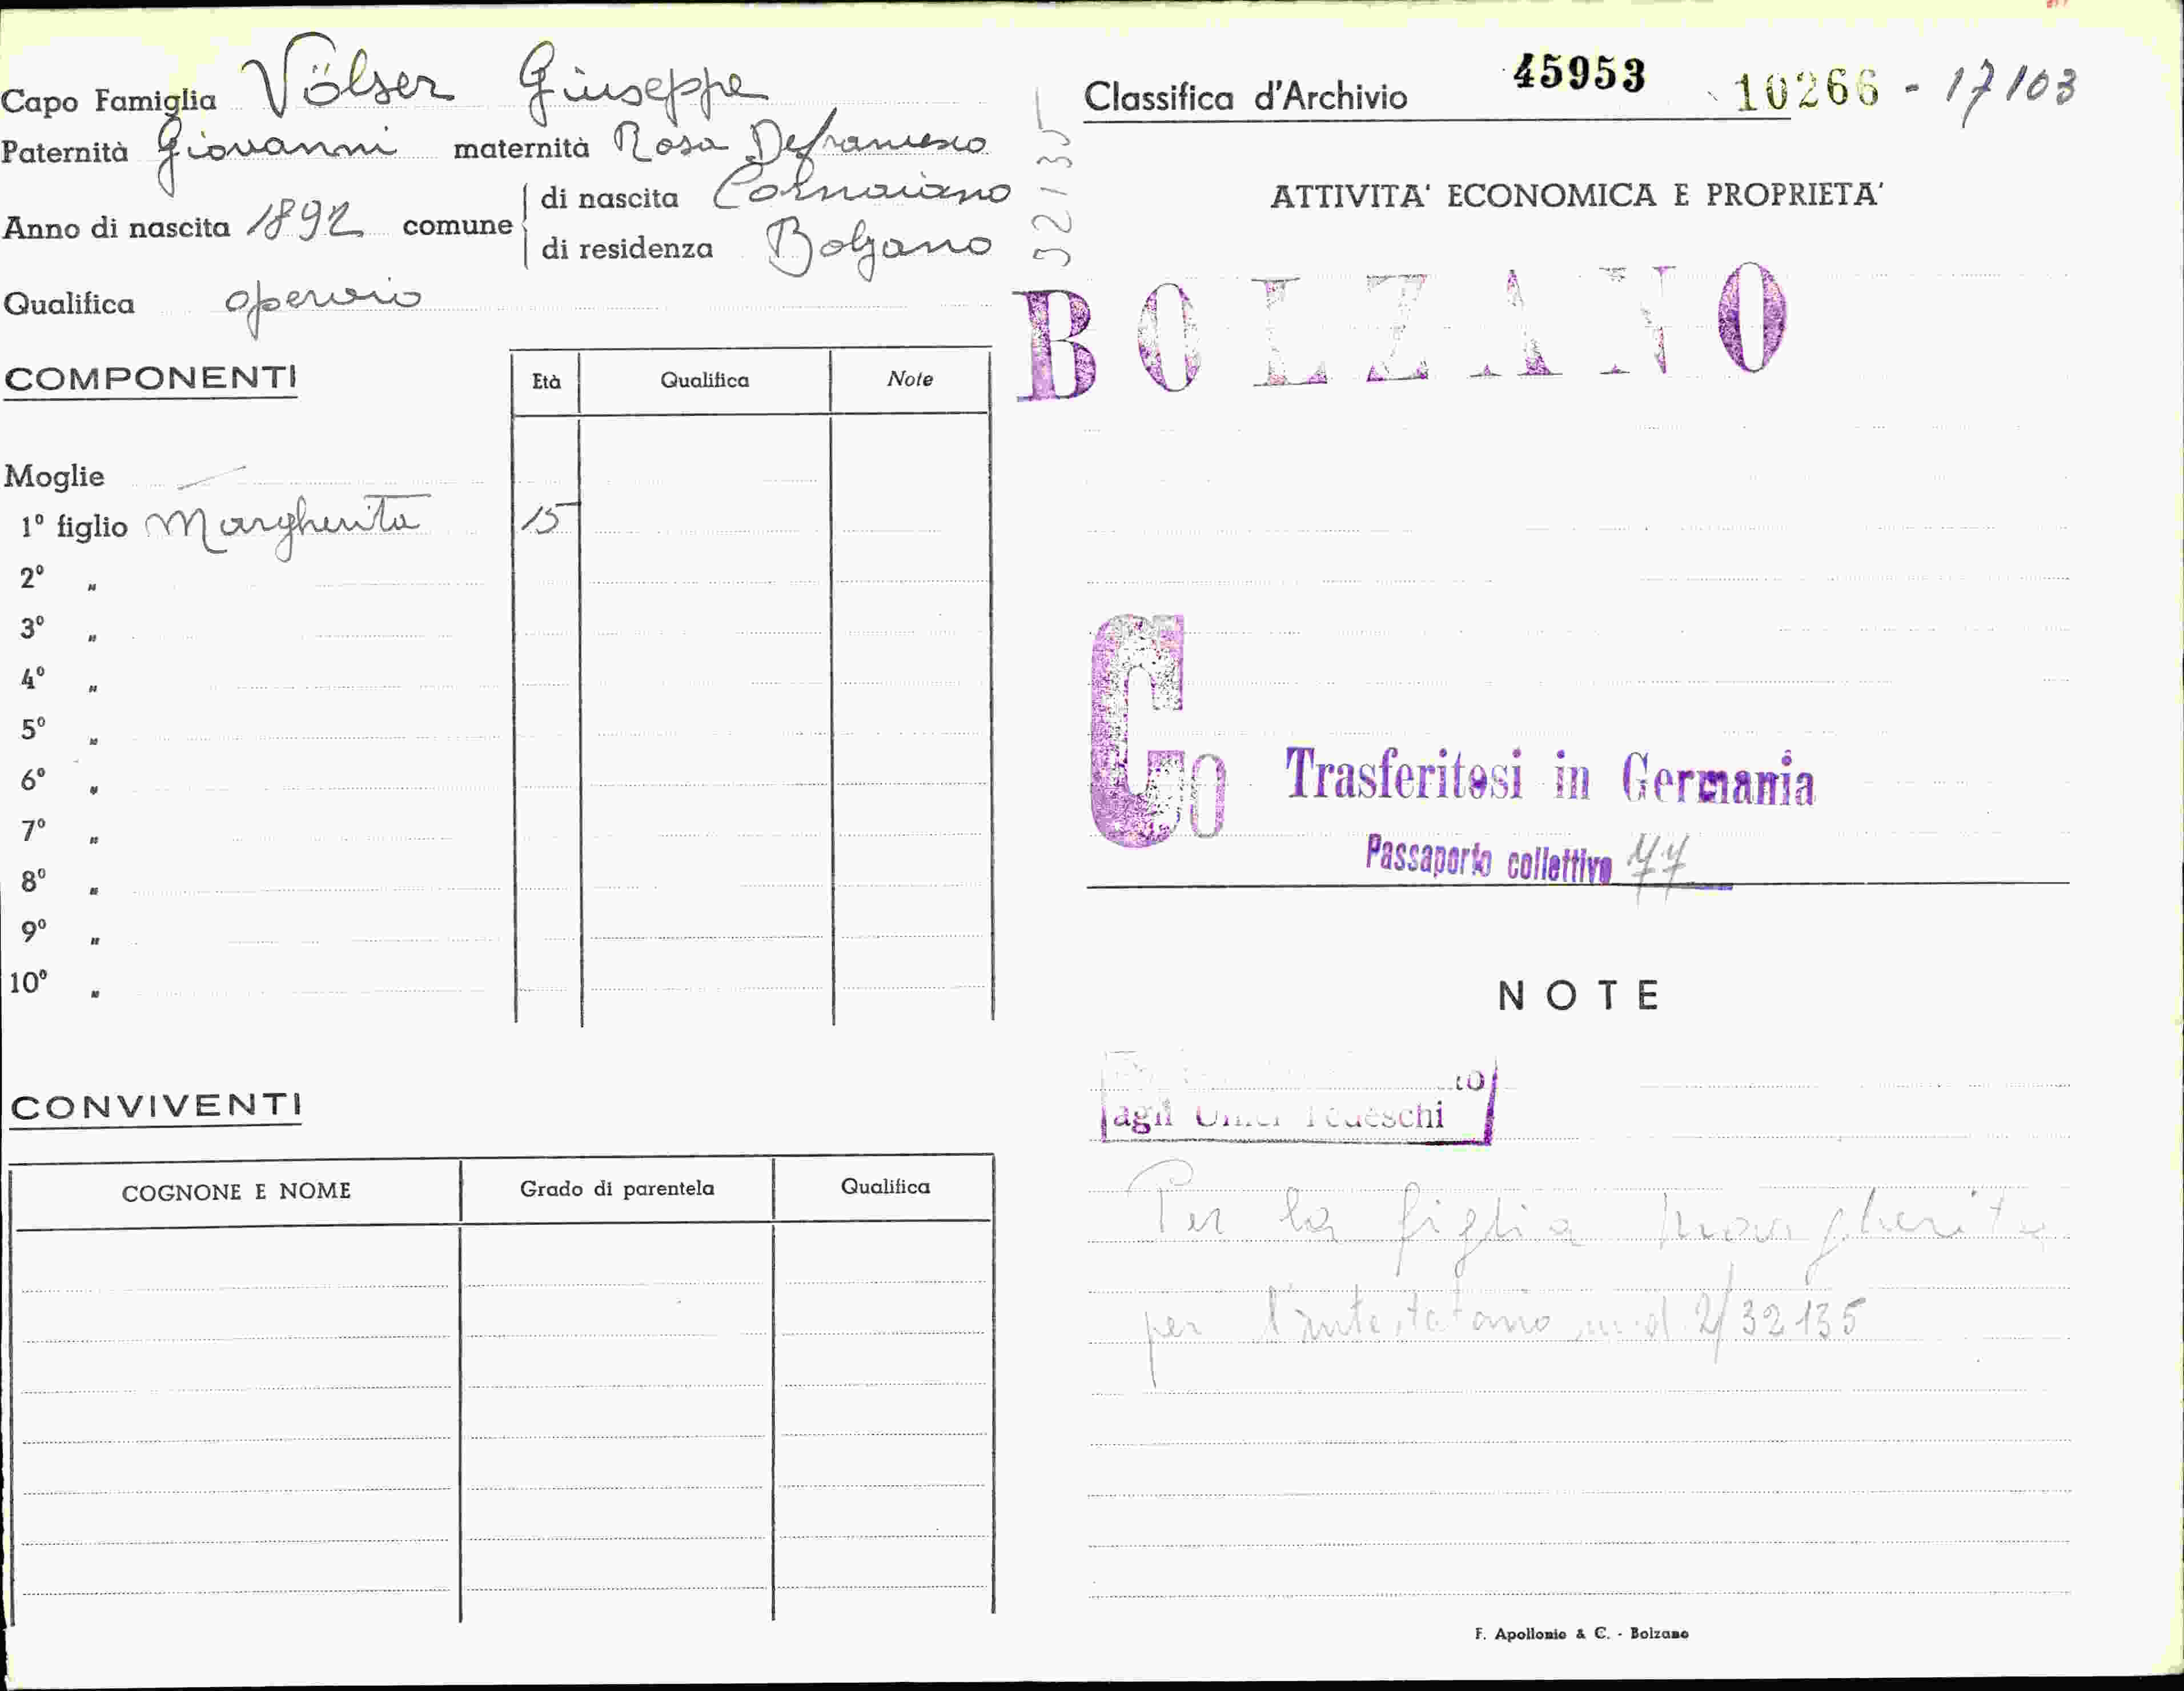 Capo Famiglia Völser Giuseppe
Paternità Giovanni maternità Rosa Defrancesco
Anno di nascita 1892 comune di nascita Cornaiano
di residenza Bolzano
Qualifica operaio
COMPONENTI
Età Qualifica Note
Moglie —
1º figlio Margherita 15
2º "
3º "
4º "
5º "
6º "
7º "
8º "
9º "
10º "
CONVIVENTI
COGNONE E NOME Grado di parentela Qualifica
32135
Classifica d'Archivio 45953 10266 - 17103
ATTIVITA' ECONOMICA E PROPRIETA'
BOLZANO
Co
Trasferitosi in Germania
Passaporto collettivo 77
NOTE
agli Uffici Tedeschi
Per la figlia Margherita
per l'intestatario mod. 2/32135
F. Apollonio & C. - Bolzano